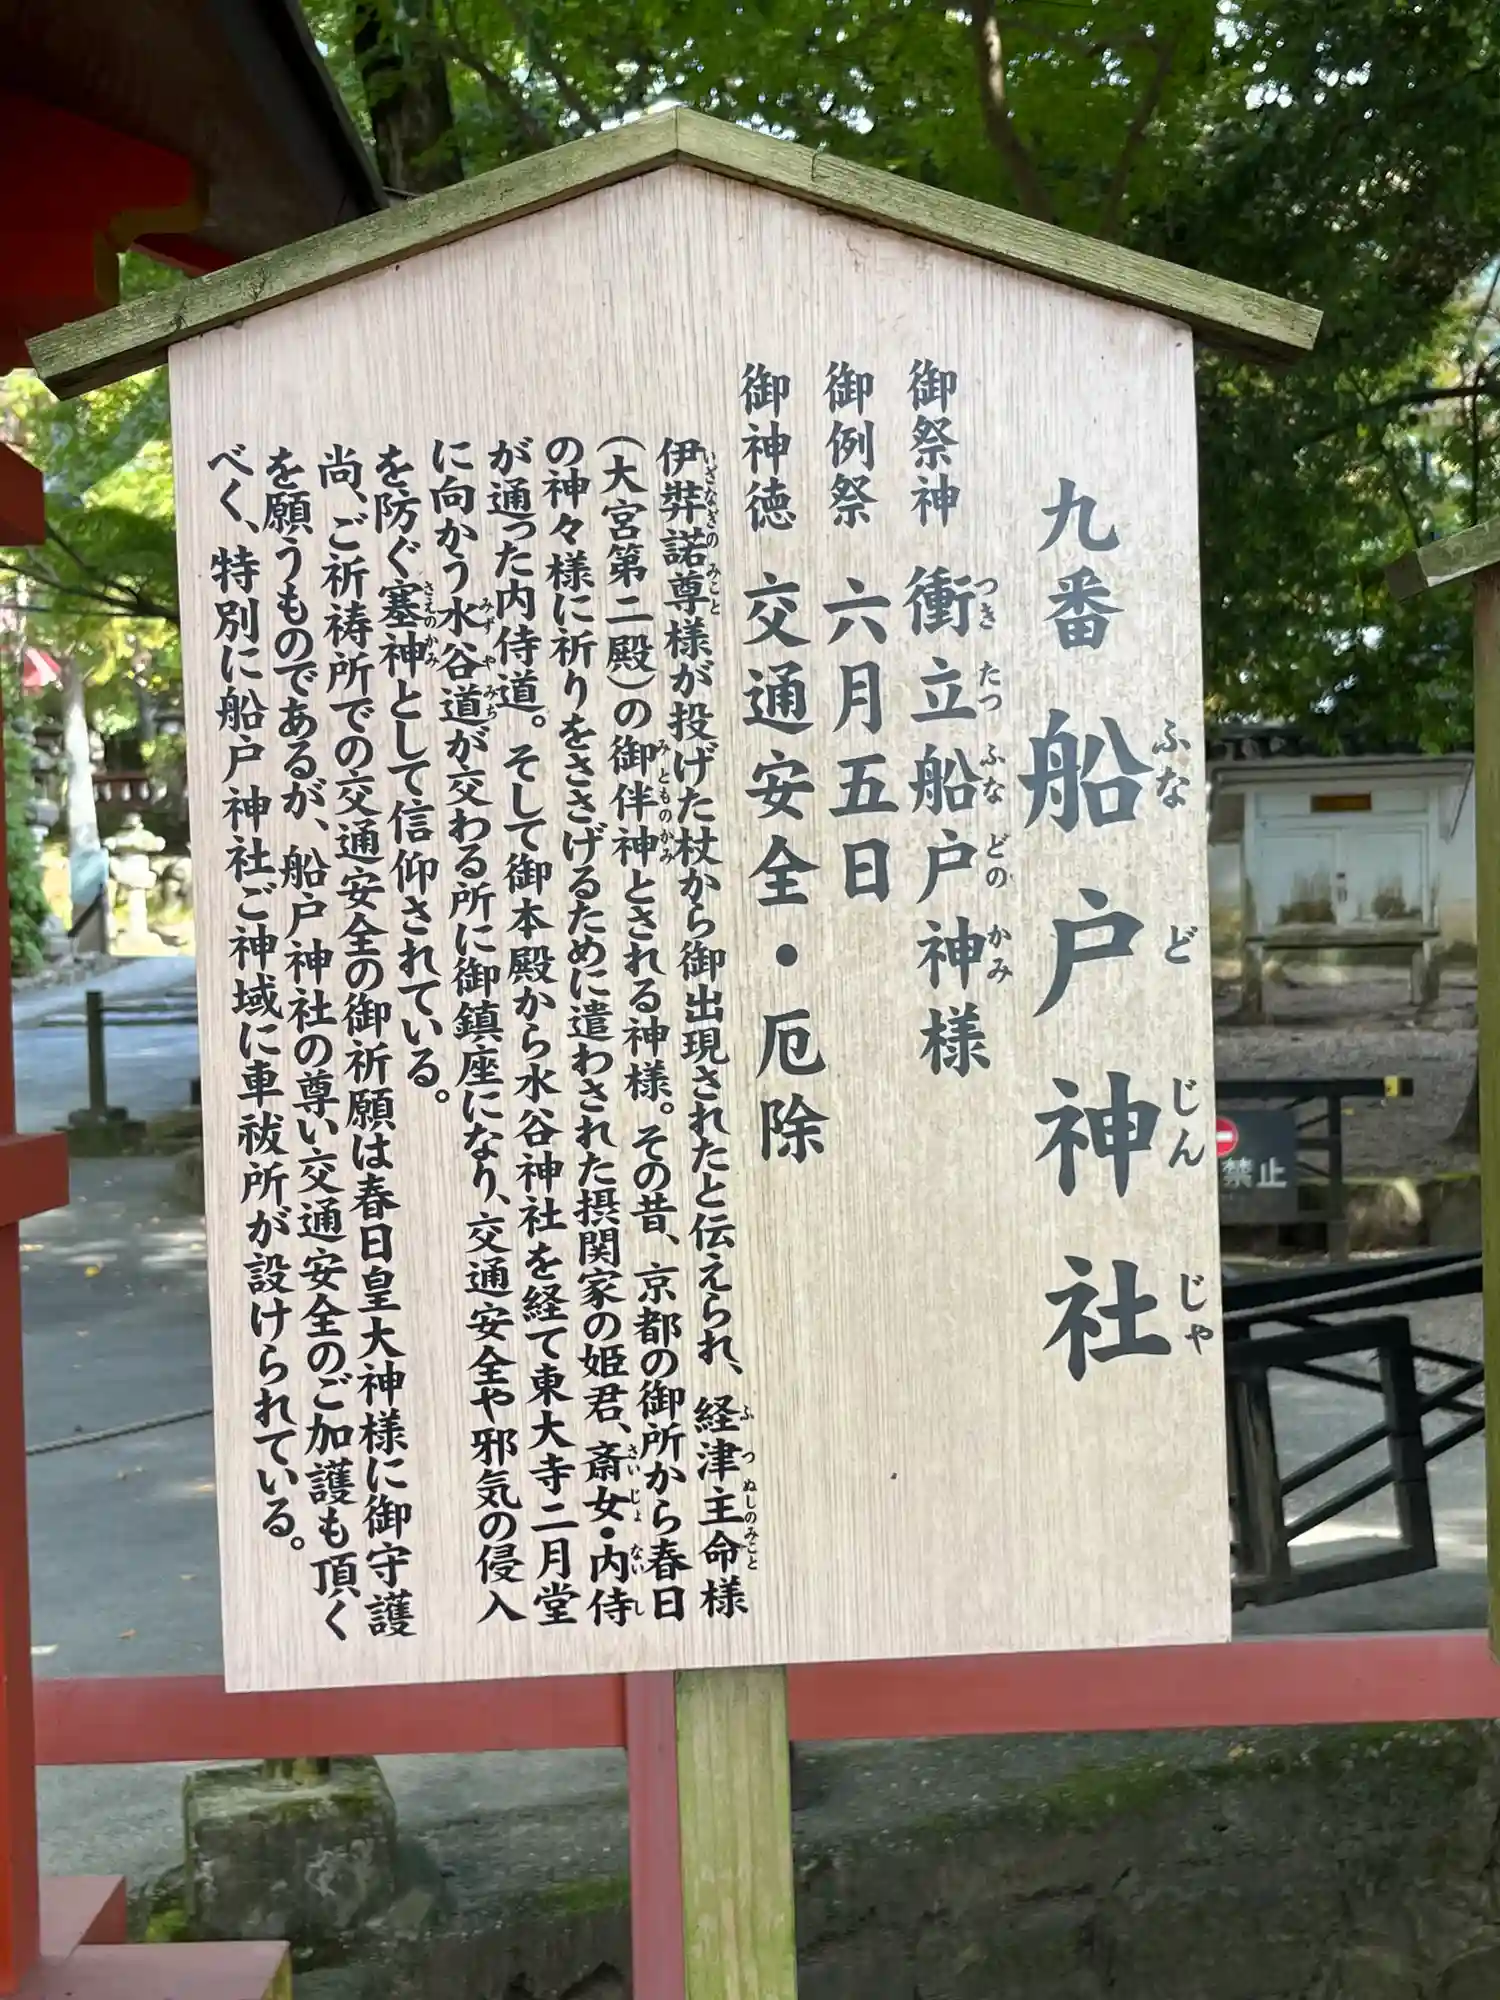 九番 船戸神社
ふな ど じん じゃ
御祭神 衝立船戸神様
つき たつ ふな どの かみ
御例祭 六月五日
御神徳 交通安全・厄除
伊弉諾尊様が投げた杖から御出現されたと伝えられ、経津主命様
いざなぎの みこと ふ つ ぬしのみこと
(大宮第二殿)の御伴神とされる神様。その昔、京都の御所から春日
み とものかみ
の神々様に祈りをささげるために遣わされた摂関家の姫君、斎女・内侍
さい じょ ない し
が通った内侍道。そして御本殿から水谷神社を経て東大寺二月堂
に向かう水谷道が交わる所に御鎮座になり、交通安全や邪気の侵入
みず や みち
を防ぐ塞神として信仰されている。
さえのかみ
尚、ご祈祷所での交通安全の御祈願は春日皇大神様に御守護
を願うものであるが、船戸神社の尊い交通安全のご加護も頂く
べく、特別に船戸神社ご神域に車祓所が設けられている。
禁止